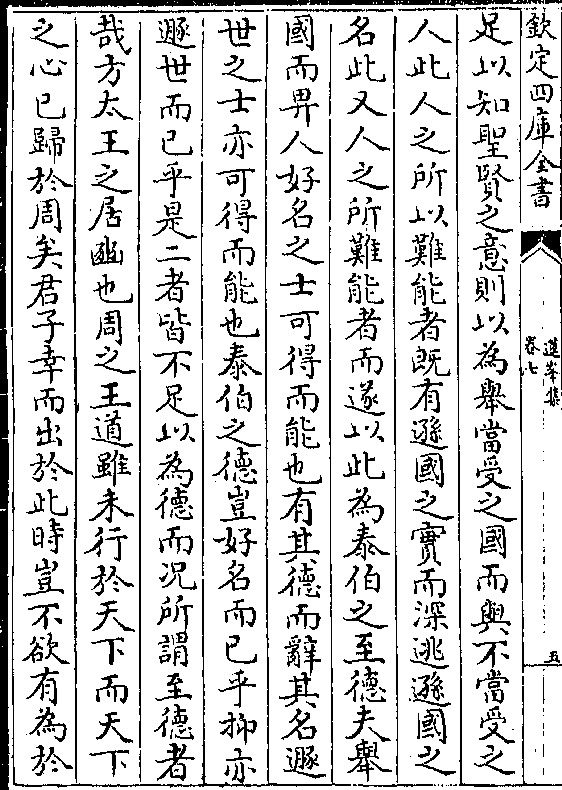 欽定四庫全書
蓮峯集
卷七
五
足以知聖賢之意則以為舉當受之國而與不當受之
人此人之所以難能者既有遜國之實而深逃遜國之
名此又人之所難能者而遂以此為泰伯之至德夫舉
國而畀人好名之士可得而能也有其德而辭其名遯
世之士亦可得而能也泰伯之德豈好名而已乎抑亦
遯世而已乎是二者皆不足以為德而況所謂至德者
哉方太王之居豳也周之王道雖未行於天下而天下
之心已歸於周矣君子幸而出於此時豈不欲有為於